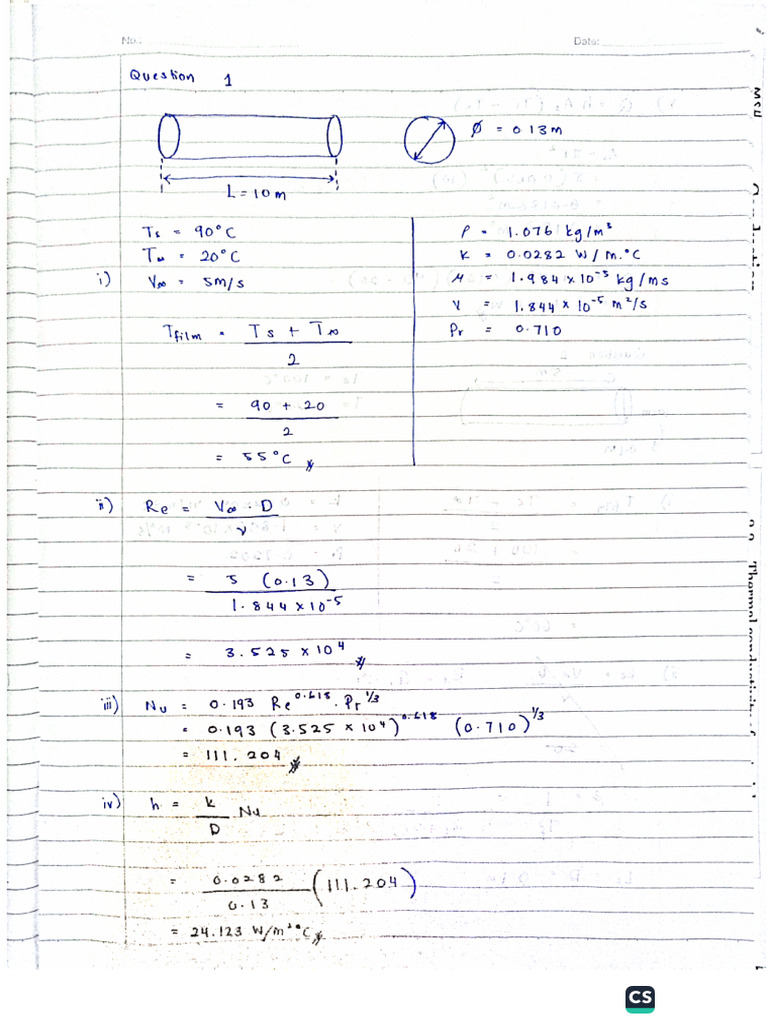 No.:
Date:
Question 1
Ø = 0.13m
L = 10 m
Ts = 90°C
T∞ = 20°C
i) V∞ = 5m/s
ρ = 1.076 kg/m³
K = 0.0282 W/m.°C
μ = 1.984 × 10⁻⁵ kg/ms
ν = 1.844 × 10⁻⁵ m²/s
Pr = 0.710
Tfilm = Ts + T∞
2
= 90 + 20
2
= 55°C
ii) Re = V∞ . D
ν
= 5 (0.13)
1.844 × 10⁻⁵
= 3.525 × 10⁴
iii) Nu = 0.193 Re^0.618 . Pr^1/3
= 0.193 (3.525 × 10⁴)^0.618 (0.710)^1/3
= 111.204
iv) h = k Nu
D
= 0.0282 (111.204)
0.13
= 24.123 W/m²°C
CS